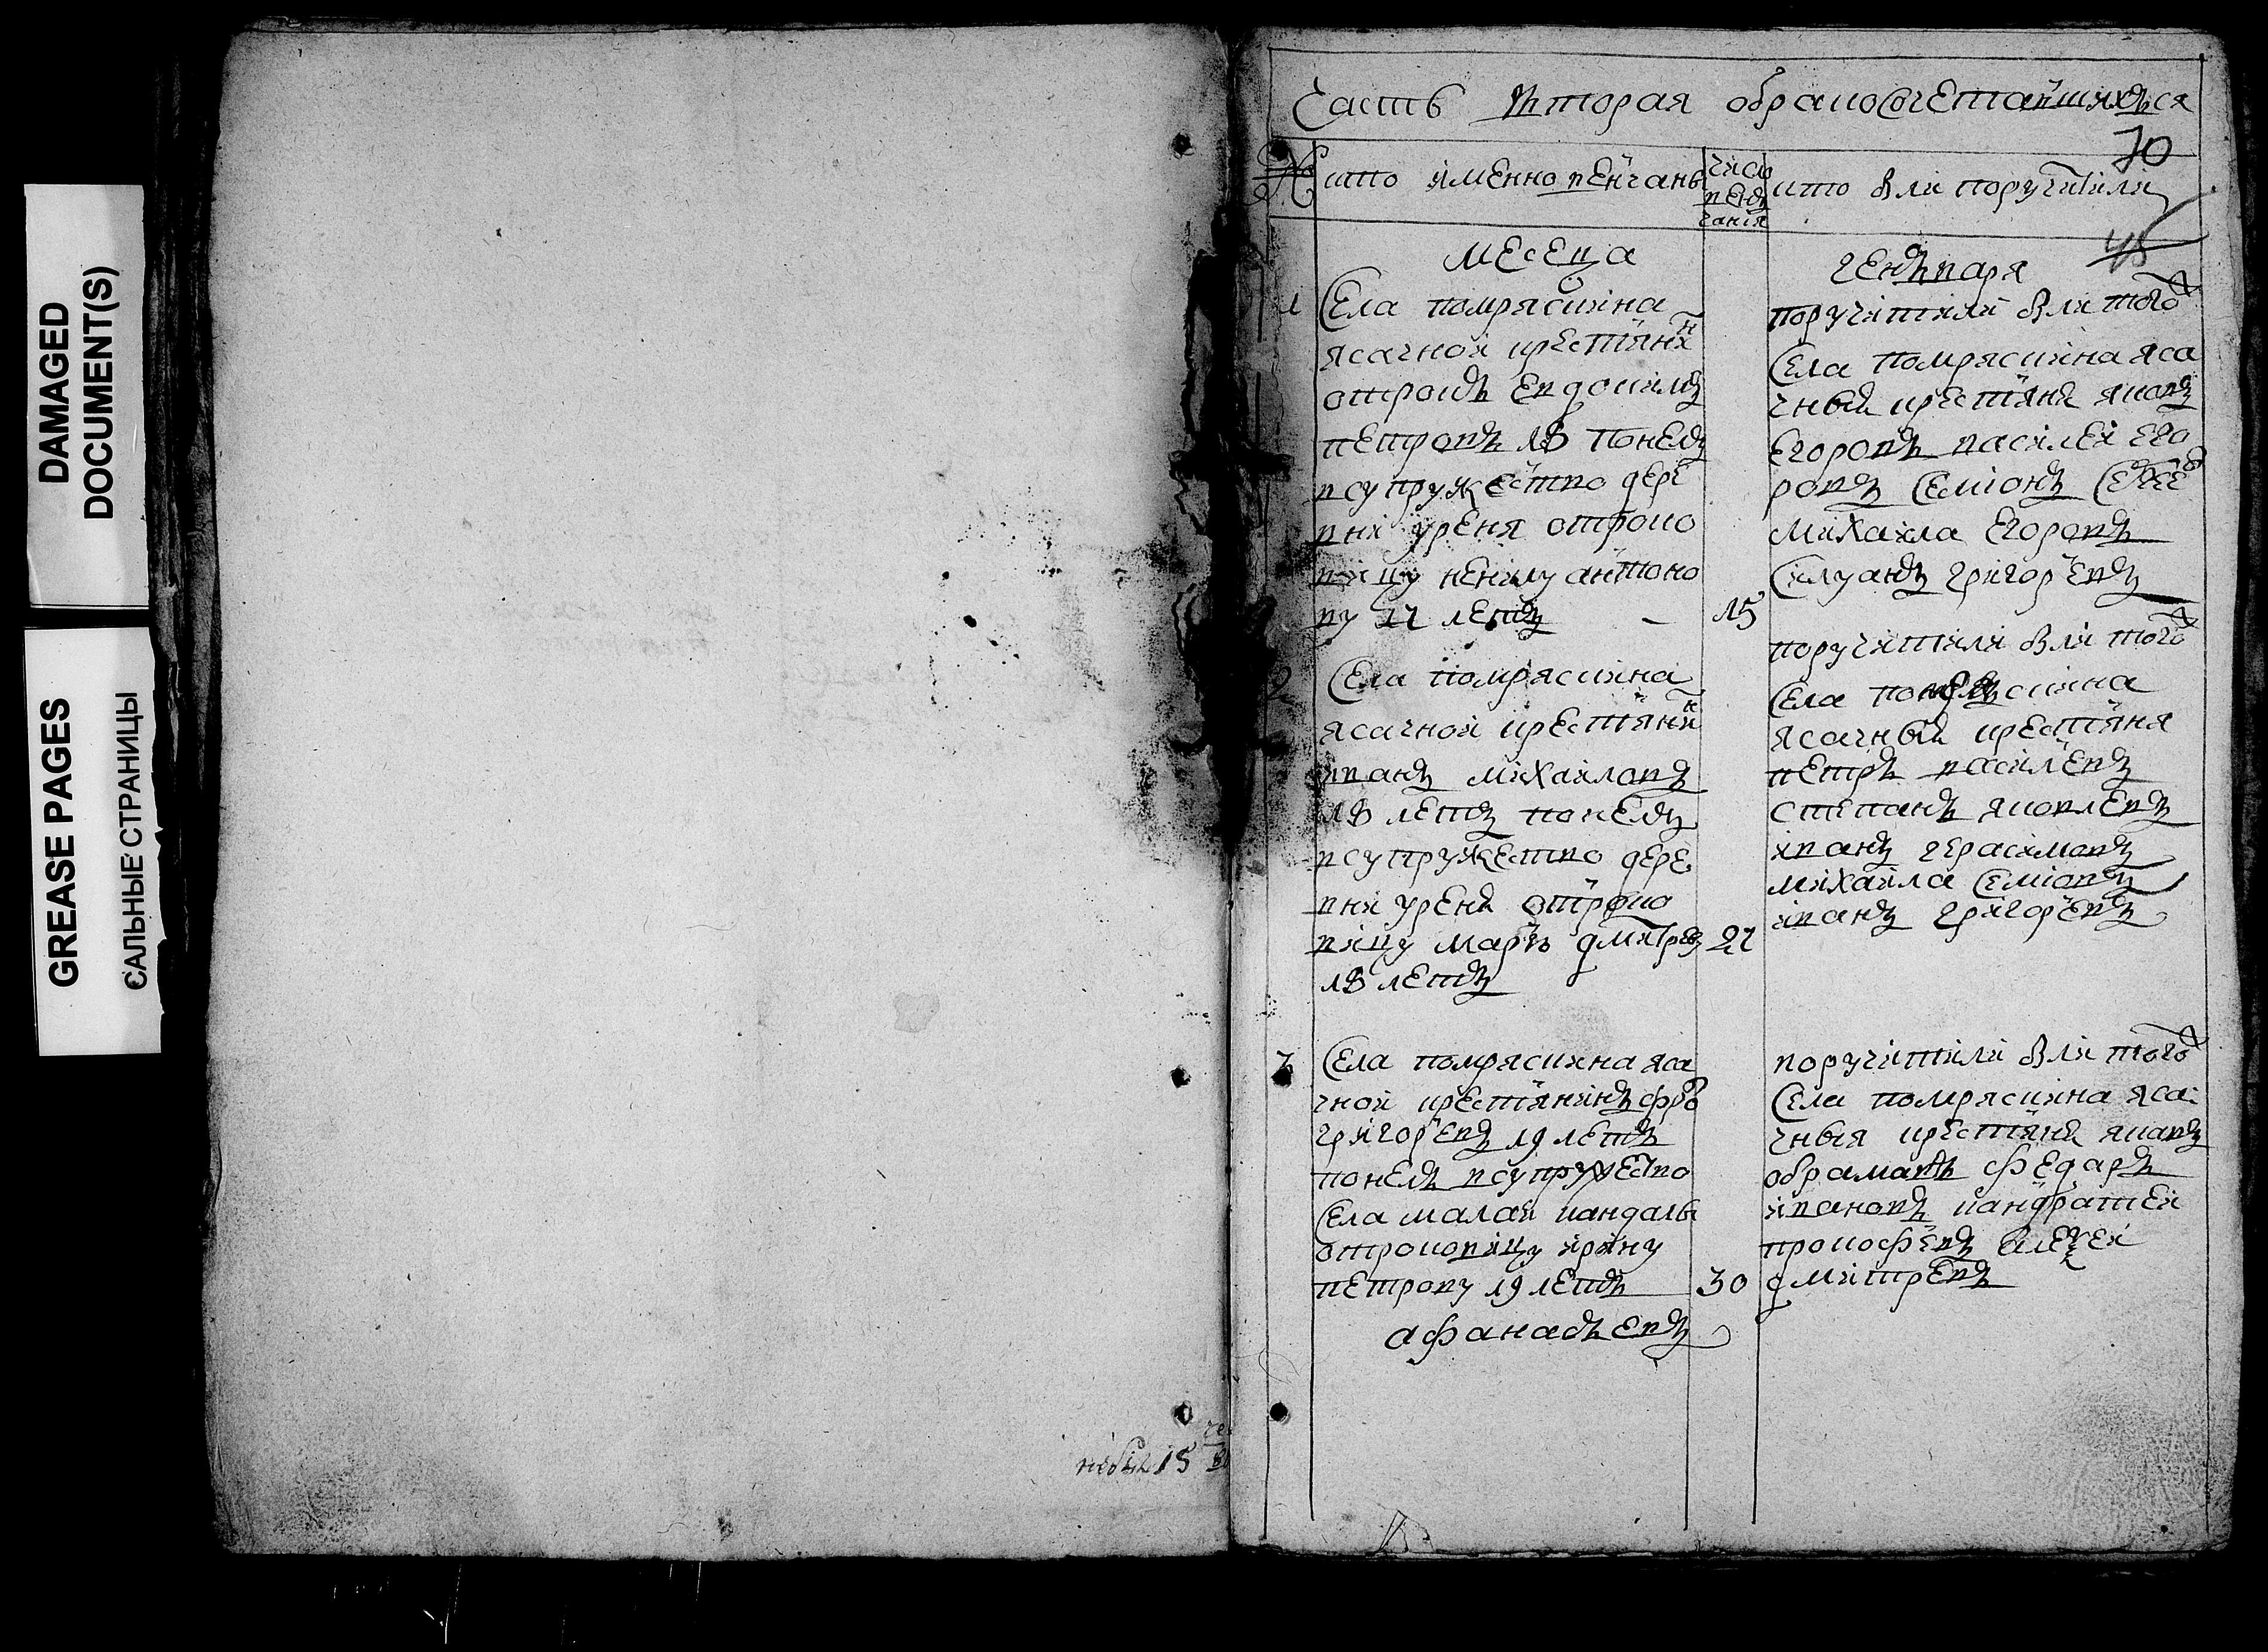 DAMAGED
DOCUMENT(S)
GREASE PAGES
САЛЬНЫЕ СТРАНИЦЫ
Часть вторая обракосочетавшихъся
70
№
кто именно венчаны
число
венъ
чания
кто были поручители
45
месеца
генъваря
1
Села помряскина
ясачной крестьянин
отрокъ Евдокимъ
петровъ 18 понелъ
в супружество дере
вни уреня отроко
вицу ненилу антоно
ву 17 летъ
15
поручители были того
Села помряскина яса
чныи крестьяня яковъ
Егоровъ василеи Его
ровъ Семионъ
михаила Егоровъ
Силуанъ григорьевъ
2
Села помряскина
ясачной крестьянин
иванъ михаиловъ
18 летъ понелъ
в супружество дере
вни урени отроко
вицу марью
18 летъ
27
поручители были того
Села
ясачныи крестьяня
петръ василевъ
степанъ яковлевъ
иванъ герасимовъ
михаила Семионовъ
иванъ григорьевъ
3
Села помряскина яса
чной крестьянинъ
григорьевъ 19 летъ
понелъ в супружество
Села малаи кандалы
отроковицу ирину
петрову 19 летъ
30
афанасъевъ
поручители были того
Села помряскина яса
чныя крестьяня яковъ
обрамовъ федаръ
ивановъ кандратеи
прокофьевъ алексеи
дмитревъ
15